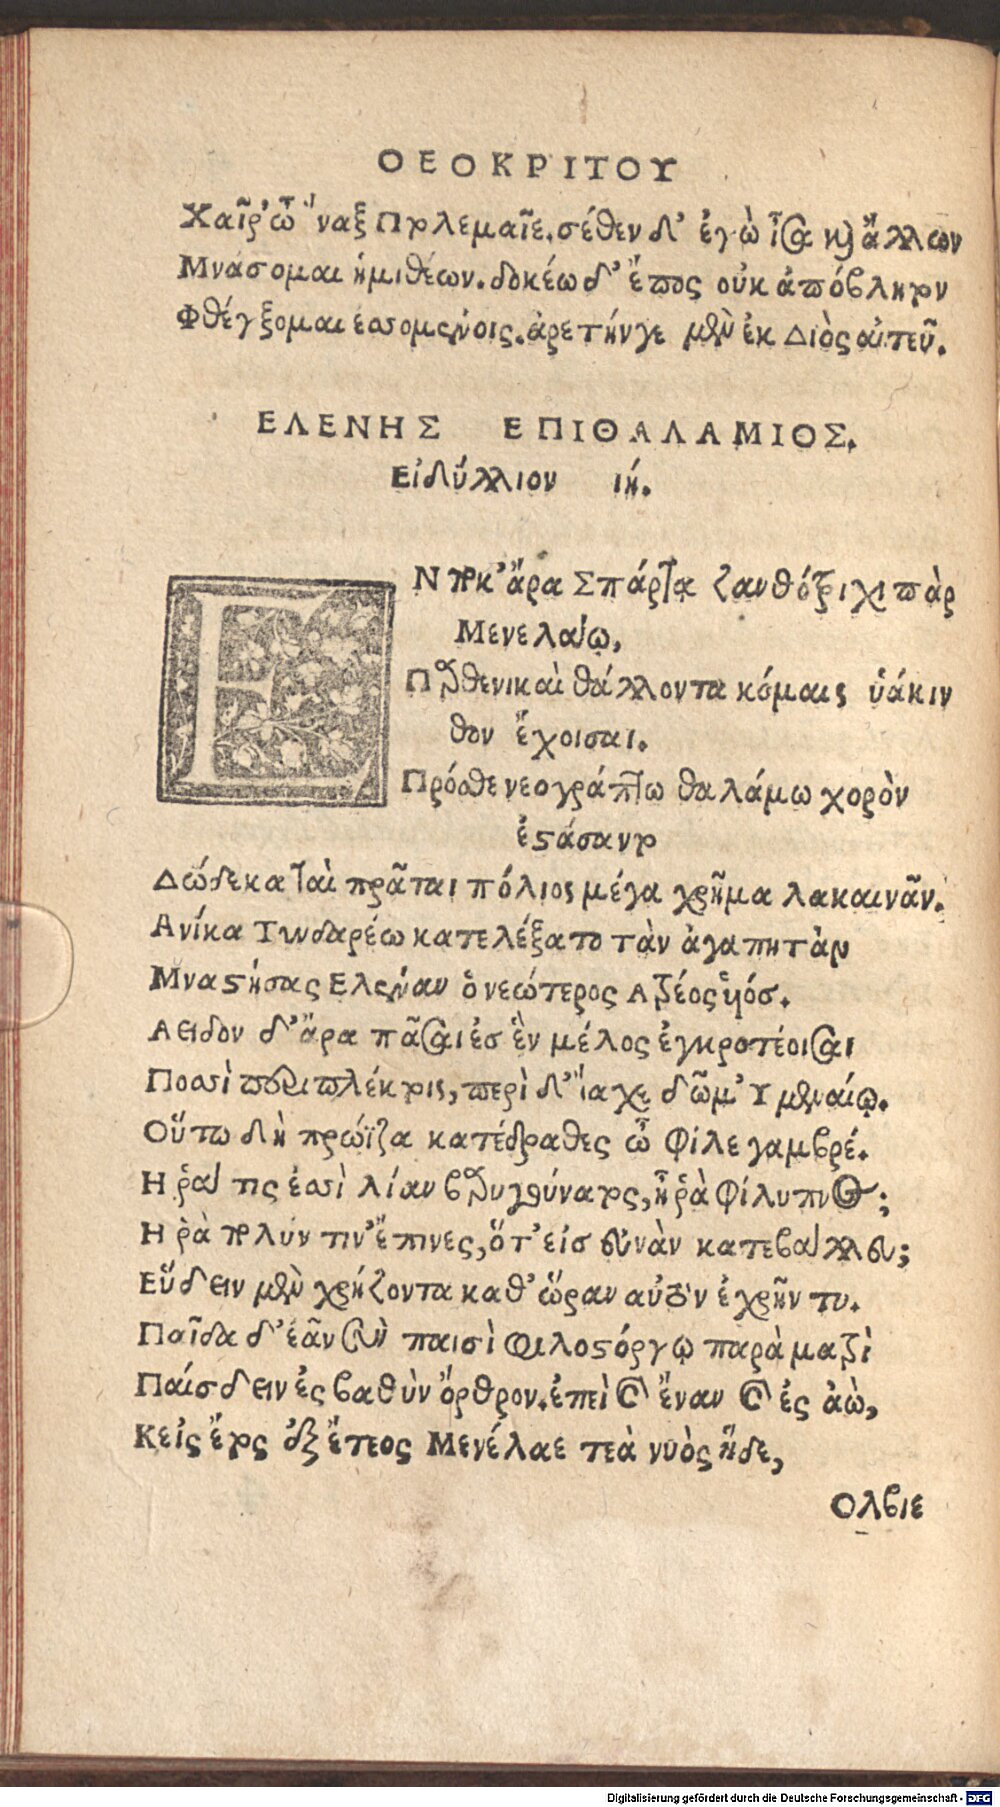 ΘΕΟΚΡΙΤΟΥ
Χαῖρ' ὦ ἄναξ Πτολεμαῖε. σέθεν δ' ἐγὼ ἶσα καὶ ἄλλων
Μνάσομαι ἡμιθέων. δοκέω δ' ἔπος οὐκ ἀπόβλητον
Φθέγξομαι ἐσσομένοις. ἀρετήν γε μὲν ἐκ Διὸς αἰτεῦ.
ΕΛΕΝΗΣ ΕΠΙΘΑΛΑΜΙΟΣ.
Εἰδύλλιον ιή.
ΕΝ ποκ' ἄρα Σπάρτᾳ ξανθότριχι πὰρ
Μενελάῳ,
Παρθενικαὶ θάλλοντα κόμαις ὑάκιν
θον ἔχοισαι.
Πρόσθε νεογράπτω θαλάμω χορὸν
ἐστάσαντο
Δώδεκα ταὶ πρᾶται πόλιος μέγα χρῆμα λακαινᾶν.
Ανίκα Τυνδαρέω κατελέξατο τὰν ἀγαπητὰν
Μναστήσας Ελέναν ὁ νεώτερος Ατρέος υἱός.
Αειδον δ' ἄρα πᾶσαι ἐσ ἓν μέλος ἐγκροτέοισαι
Ποσσὶ περιπλέκτοις, περὶ δ' ἴαχε δῶμ' Υμεναίῳ.
Οὕτω δὴ πρώϊζα κατέδραθες ὦ φίλε γαμβρέ.
Η ῥά τις ἐσσὶ λίαν βαρυγούνατος, ἢ ῥὰ φίλυπνος;
Η ῥὰ πολύν τιν' ἔπινες, ὅτ' εἰσ εὐνὰν κατεβάλλευ;
Εὕδειν μὲν χρῄζοντα καθ' ὥραν αὐτὸν ἐχρῆν τυ.
Παῖδα δ' ἐᾶν σὺν παισὶ φιλοστόργῳ παρὰ ματρὶ
Παίσδειν ἐς βαθὺν ὄρθρον. ἐπεὶ καὶ ἔναν καὶ ἐς ἀὼ,
Κεἰς ἔτος ἐξ ἔτεος Μενέλαε τεὰ νυὸς ἥδε,
Ολβιε
Digitalisierung gefördert durch die Deutsche Forschungsgemeinschaft - DFG